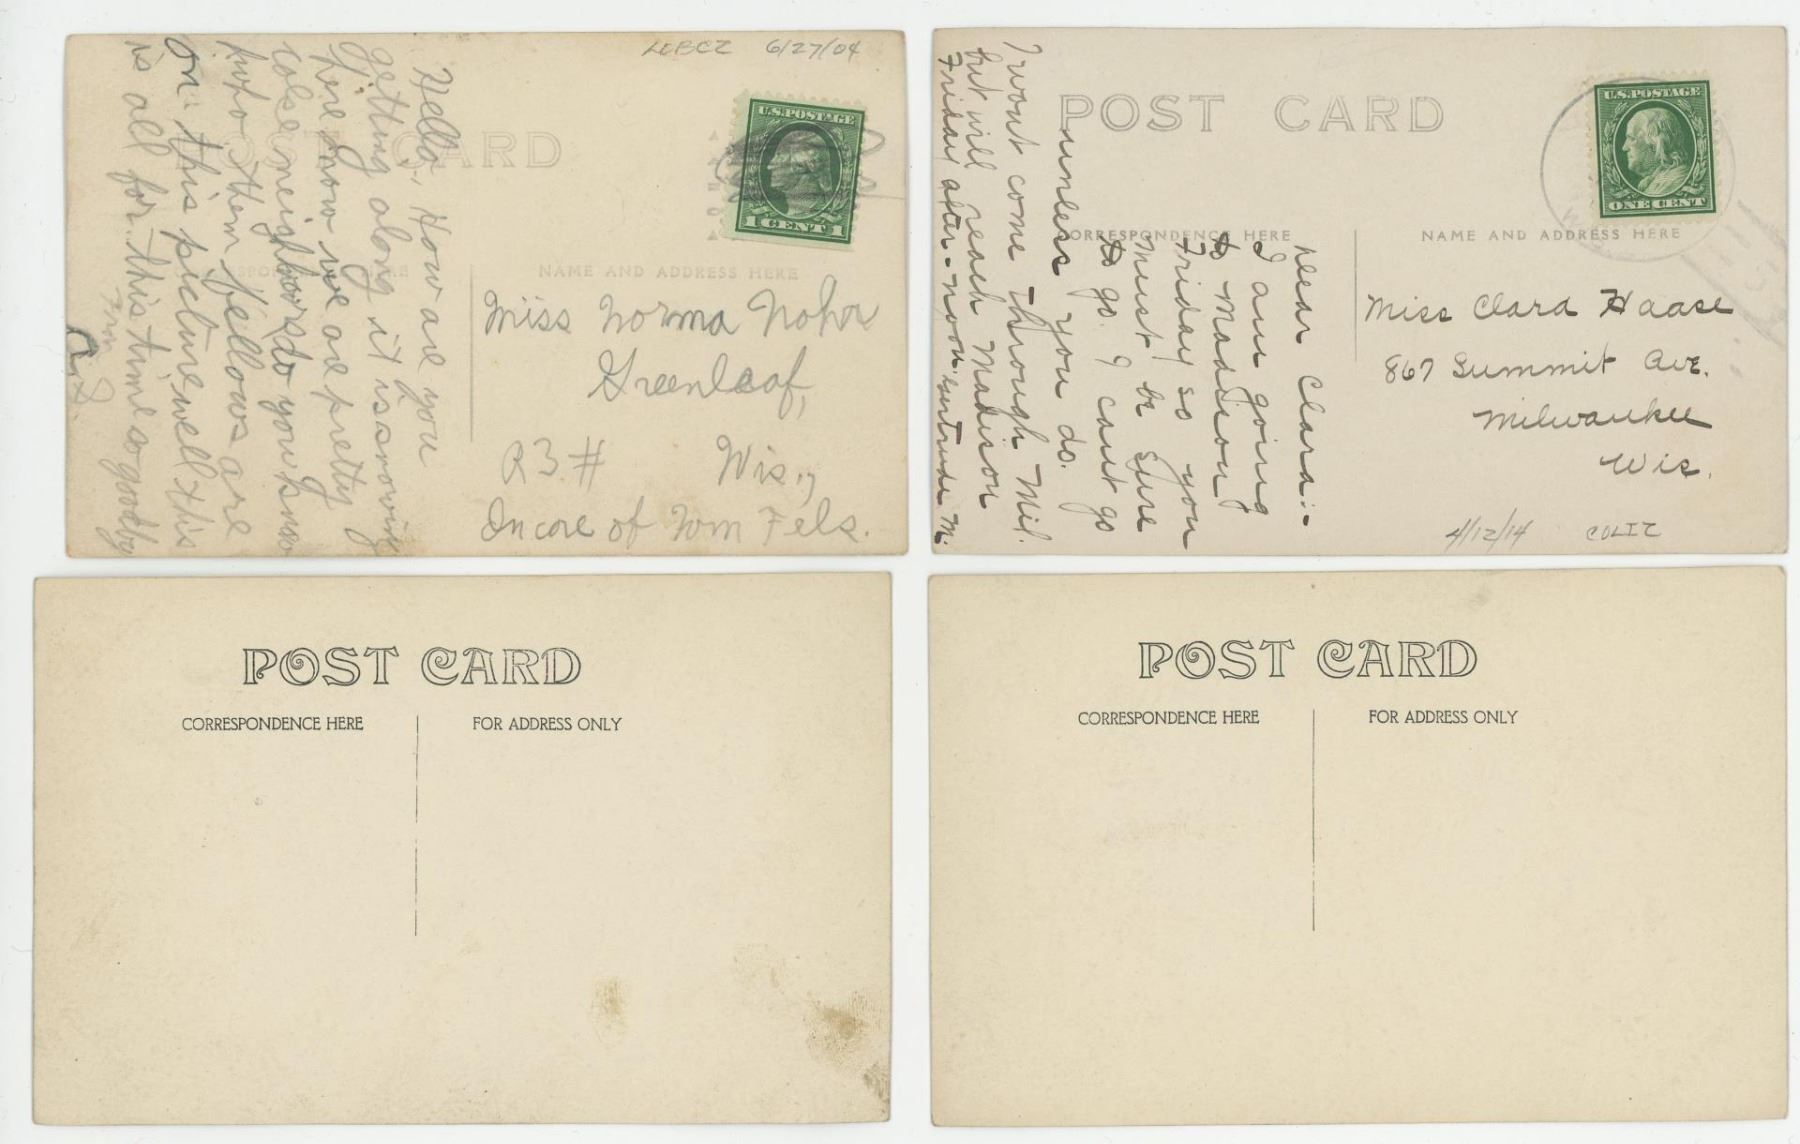 LCBCZ 6/27/04
POST CARD
U.S. POSTAGE
1 CENT 1
NAME AND ADDRESS HERE
Hello, How are you
getting along it is snowing
here now we are pretty
close neighbors do you know
who them fellows are
on this picture well this
is all for this time so goodby
from
A.J.
Miss Norma Nohr
Greenleaf,
R 3 # Wis.,
In care of Wm Fels.
POST CARD
U.S. POSTAGE
ONE CENT
CORRESPONDENCE HERE
NAME AND ADDRESS HERE
Dear Clara:-
I am going
to Madison
Friday so you
must be sure
to go. I cant go
unless you do.
I wont come through Mil.
but will reach Madison
Friday after-noon. Gertrude M.
Miss Clara Haase
867 Summit Ave.
Milwaukee
Wis.
4/12/14 COLIZ
POST CARD
CORRESPONDENCE HERE
FOR ADDRESS ONLY
POST CARD
CORRESPONDENCE HERE
FOR ADDRESS ONLY